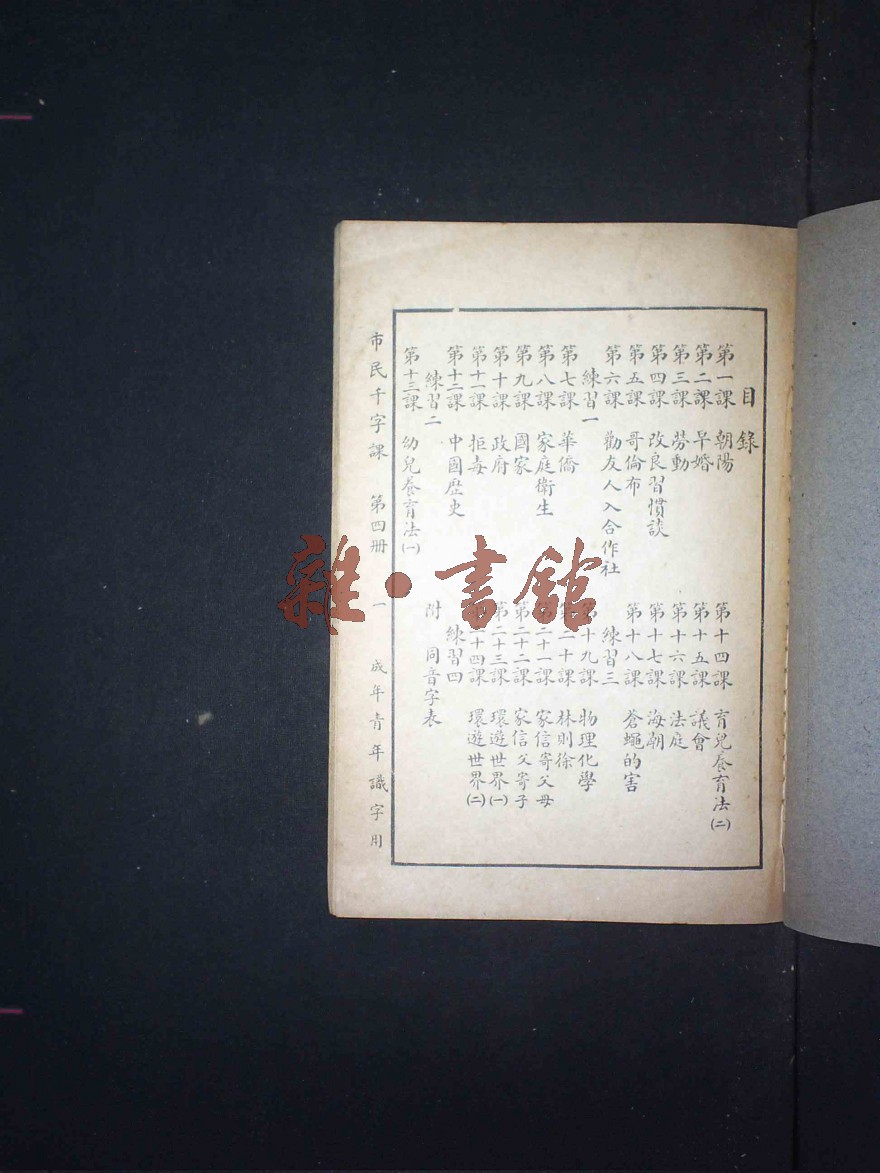 目錄
第一課 朝陽
第二課 早婚
第三課 勞動
第四課 改良習慣談
第五課 哥倫布
第六課 勸友人入合作社
練習一
第七課 華僑
第八課 家庭衛生
第九課 國家
第十課 政府
第十一課 拒毒
第十二課 中國歷史
練習二
第十三課 幼兒養育法(一)
第十四課 育兒養育法(二)
第十五課 議會
第十六課 法庭
第十七課 海朝
第十八課 蒼蠅的害
練習三
第十九課 物理化學
第二十課 林則徐
第二十一課 家信寄父母
第二十二課 家信父寄子
第二十三課 環遊世界(一)
第二十四課 環遊世界(二)
練習四
附 同音字表
市民千字課 第四冊 一 成年青年識字用
雜·書館